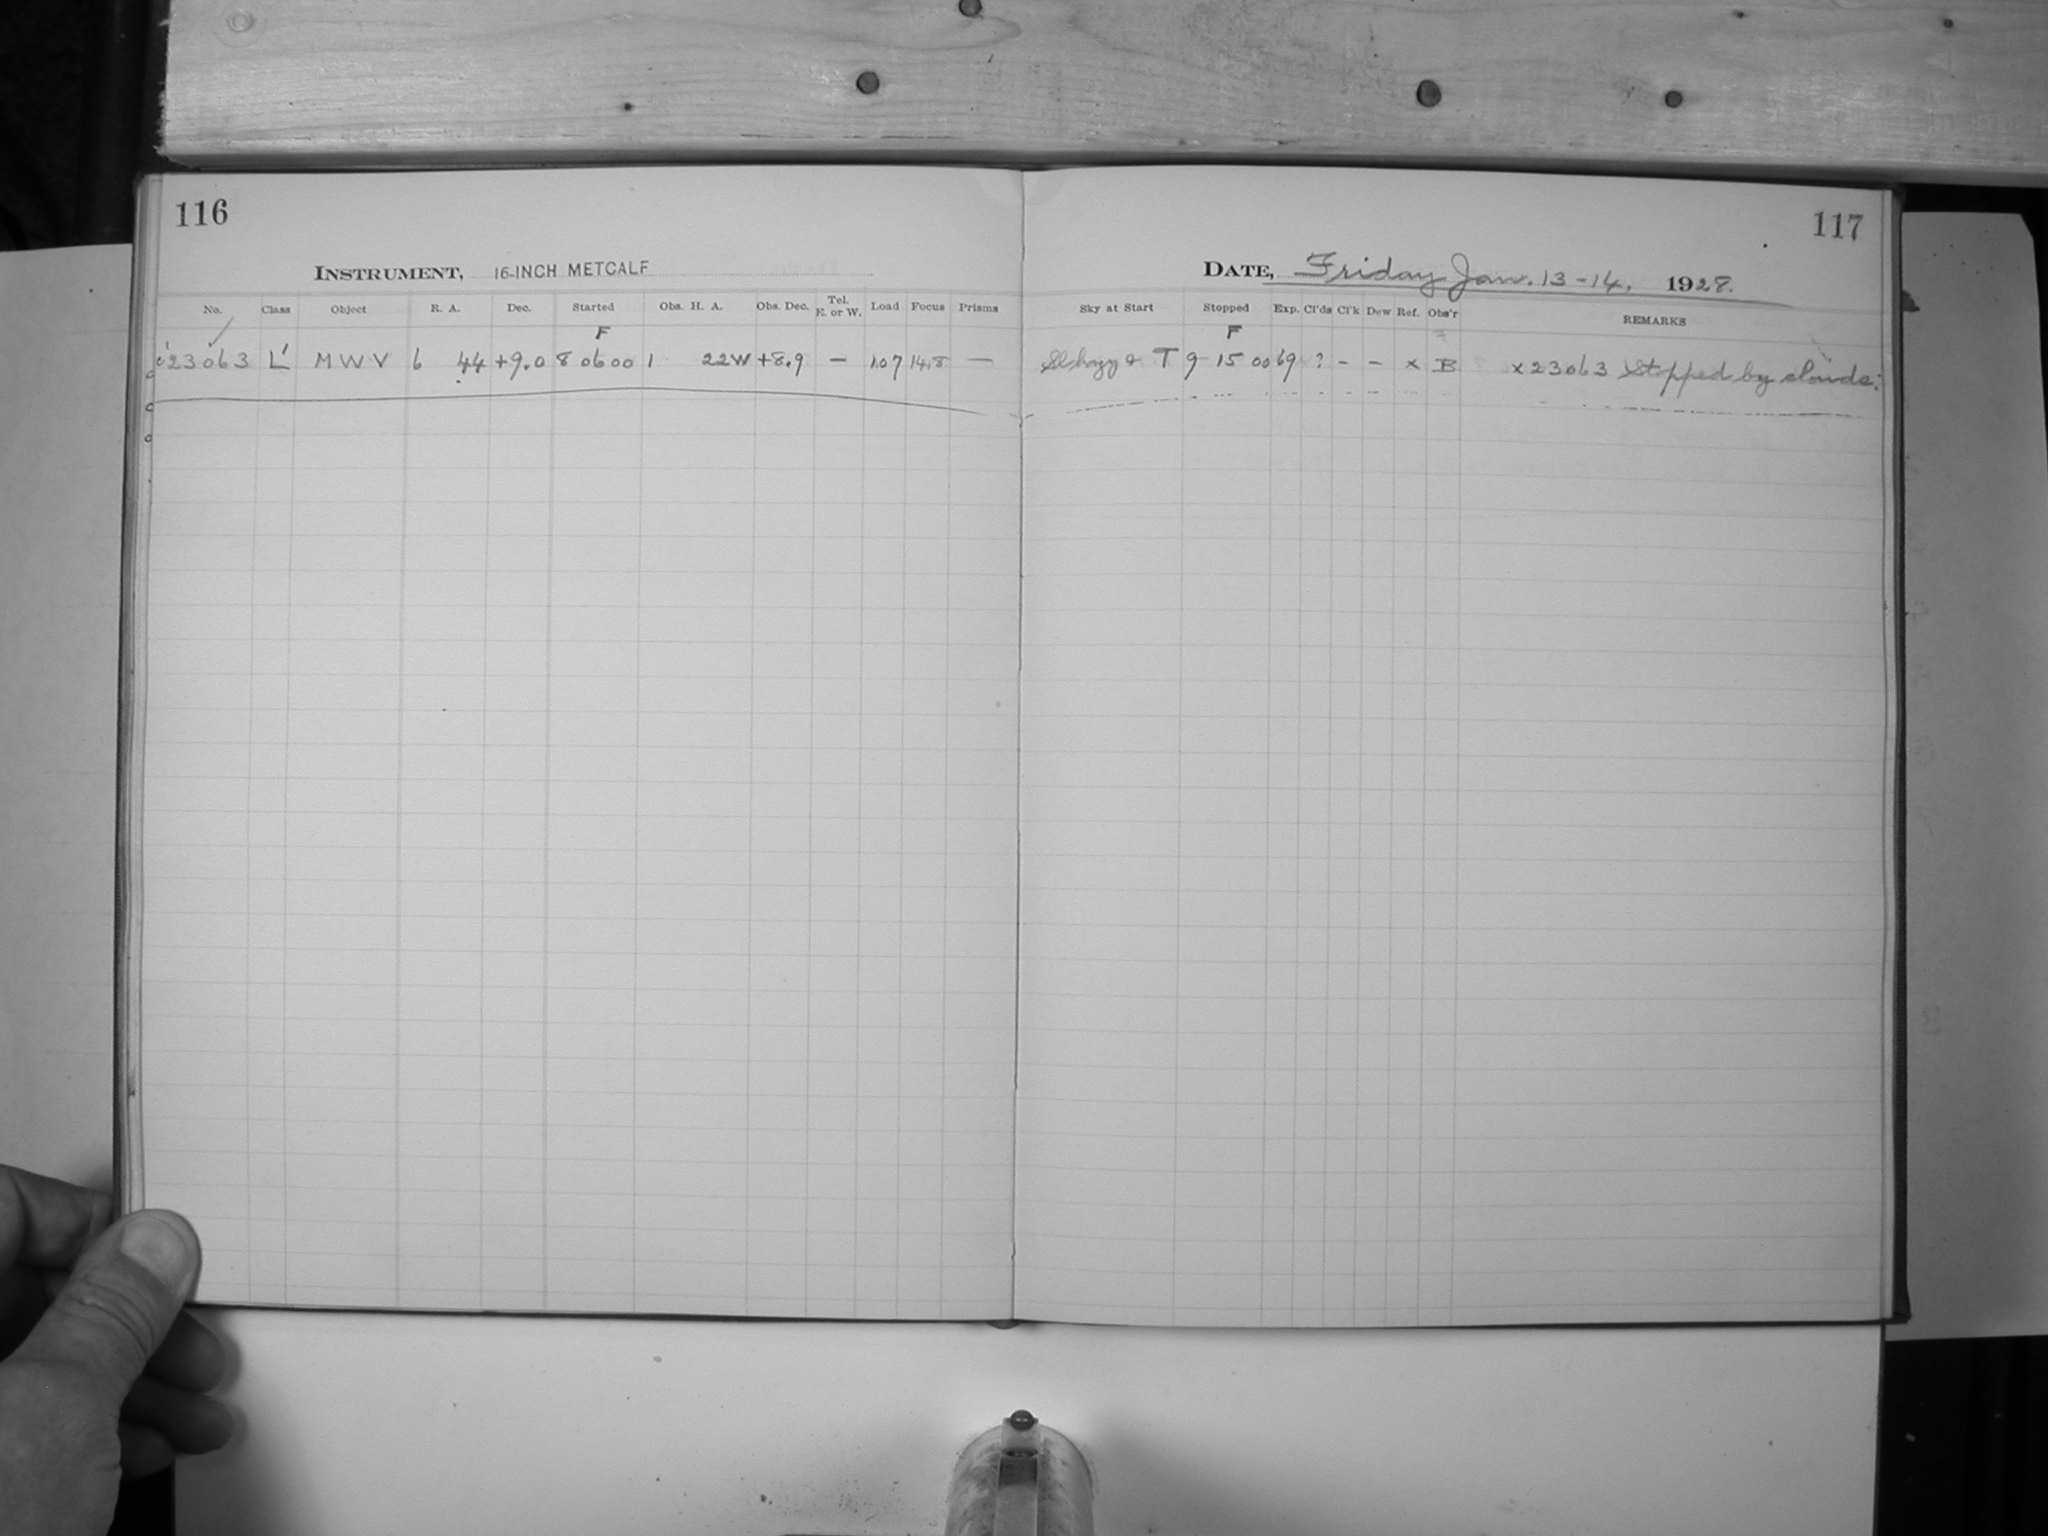 116
INSTRUMENT, 16-INCH METCALF
No. Class Object R. A. Dec. Started Obs. H. A. Obs. Dec. Tel. E. or W. Load Focus Prisms
F
23063 L' MWV 6 44 +9.0 8 06 00 1 22W +8.9 — 107 14.8 —
117
DATE, Friday Jan. 13-14, 1928.
Sky at Start Stopped Exp. Cl'ds Cl'k Dew Ref. Obs'r REMARKS
F
Sl hazy & T 9 15 00 69 ? - - x B x23063 Stopped by clouds.